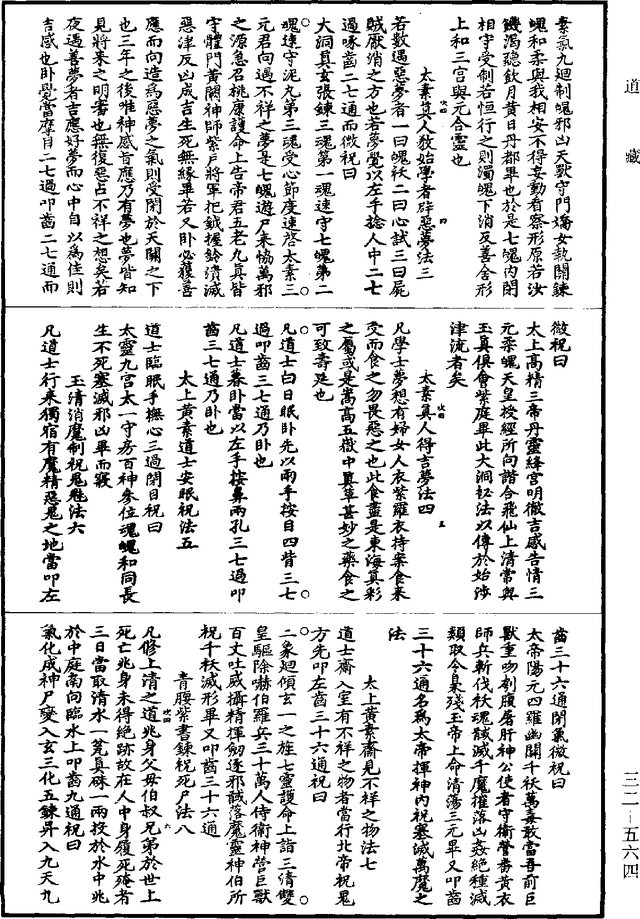 道藏
素氣九迴制魄邪凶天獸守門嬌女執關鍊
魄和柔與我相安不得妄動看察形原若汝
飢渴聽飲月黄日丹都畢也於是七魄內閉
相守受制若恒行之則濁魄下消反善合形
上和三宫與元合靈也
太素真人教始學者辟惡夢法三
若數遇惡夢者一曰魄袄二曰心試三曰屍
賊厭消之方也若夢覺以左手捻人中二七
過啄齒二七通而微祝曰
大洞真玄張鍊三魂第一魂速守七魄第二
魂速守泥丸第三魂受心節度速啓太素三
元君向遇不祥之夢是七魄遊尸来協萬邪
之源急召桃康護命上告帝君五老九真皆
守體門黄闕神師紫戸將軍把鉞握鈴消滅
惡津反凶成吉生死無緣畢若又卧必獲善
應而向造為惡夢之氣則受閉於天關之下
也三年之後唯神感旨應乃有夢也夢皆知
見將来之明審也無復惡占不祥之想矣若
夜遇善夢者吉應好夢而心中自以為佳則
吉感也卧覺當摩目二七過叩齒二七通而
微祝曰
太上高精三帝丹靈絳宫明徹吉感告情三
元柔魄天皇授經所向諧合飛仙上清常與
玉真俱會紫庭畢此大洞祕法以傳於始涉
津流者矣
太素真人得吉夢法四
凡學士夢想有婦女人衣紫羅衣持案食来
受而食之勿畏惡之也此食盡是東海真彩
之屬或是嵩高五嶽中真草甚妙之藥食之
可致壽延也
凡道士白日眠卧先以兩手按目四眥三七
過叩齒三七通乃卧也
凡道士暮卧當以左手按鼻兩孔三七過叩
齒三七通乃卧也
太上黄素道士安眠祝法五
道士臨眠手撫心三過閉目祝曰
太靈九宫太一守房百神參位魂魄和同長
生不死塞滅邪凶畢而寢
玉清消魔制祝鬼魁法六
凡道士行来獨宿有魔精惡鬼之地當叩左
齒三十六通閉氣微祝曰
太帝陽元四羅幽關千袄萬毒敢當吾前巨
獸重吻刳腹屠肝神公使者守衛營番黄衣
師兵斬伐袄魂馘滅千魔摧落凶姦絕種滅
類取令梟殘玉帝上命清蕩三元畢又叩齒
三十六通名為太帝揮神內祝塞滅萬魔之
法
太上黄素齋見不祥之物法七
道士齋入室有不祥之物者當行北帝祝鬼
方先叩左齒三十六通祝曰
二象迴傾玄一之旌七靈護命上詣三清雙
皇驅除赫伯羅兵三十萬人侍衛神營巨獸
百丈吐威攝精揮劒逐邪馘落魔靈神伯所
祝千袄滅形畢又叩齒三十六通
青腰紫書鍊祝死尸法八
凡修上清之道兆身父母伯叔兄弟於世上
死亡兆身未得絕跡故在人中身履死殗者
三日當取清水一㼝真硃一兩投於水中兆
於中庭南向臨水上叩齒九通祝曰
氣化成神尸變入玄三化五鍊昇入九天九
三二―五六四